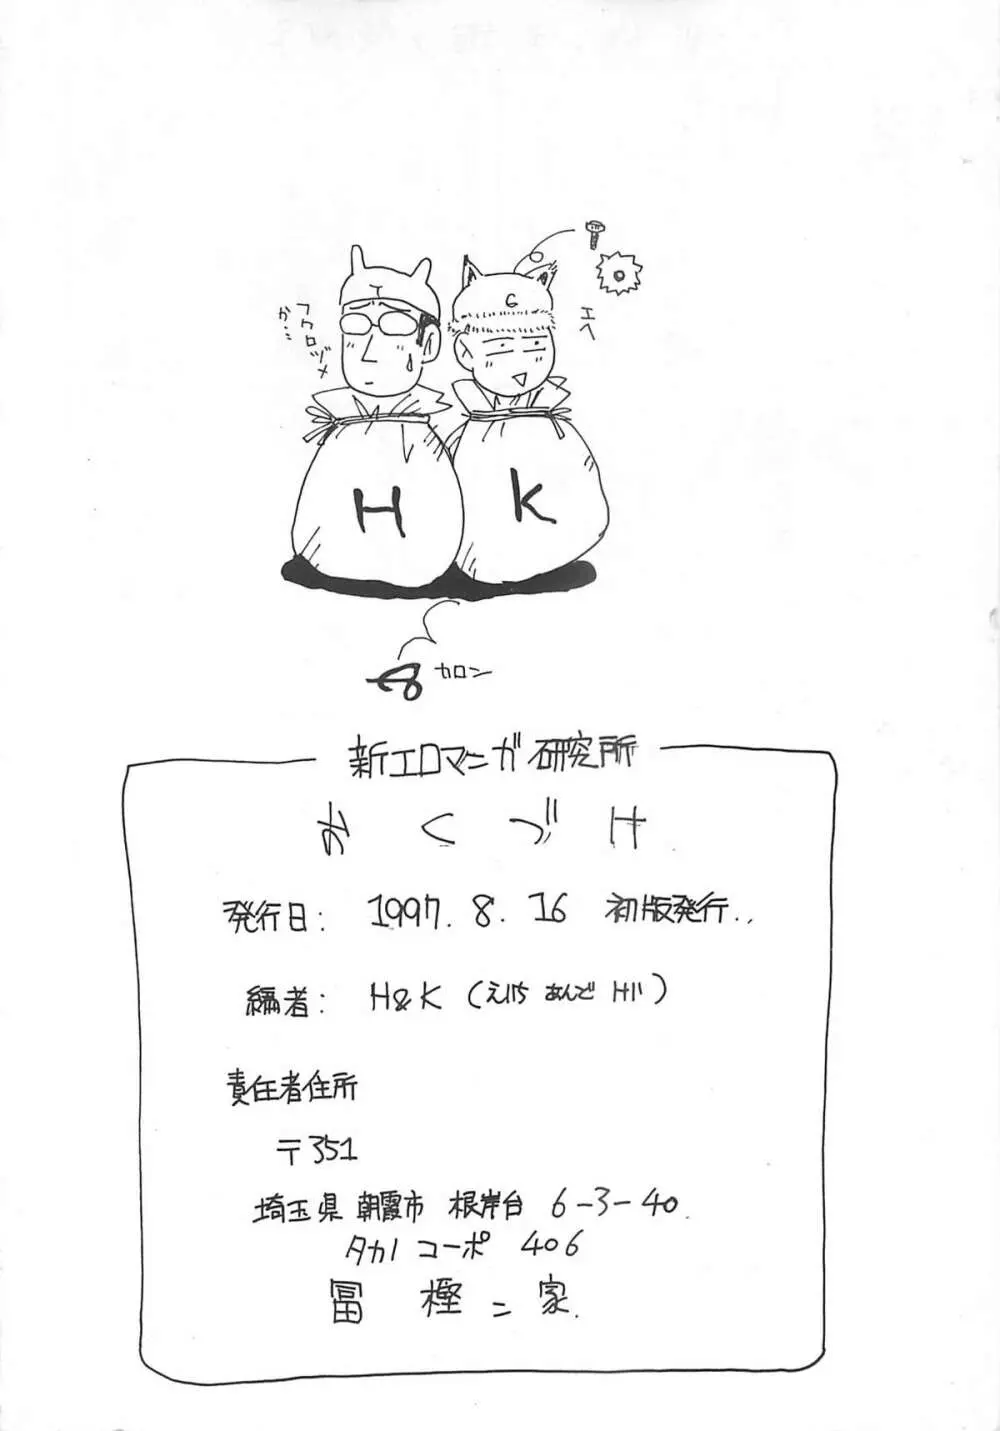 フクロヅメか…
T
G
エヘ
H
K
カロン
新エロマンガ研究所
おくづけ
発行日: 1997.8.16 初版発行..
編者: H&K (えいち あんど けい)
責任者住所
〒351
埼玉県 朝霞市 根岸台 6-3-40.
タカノ コーポ 406
冨樫ン家.